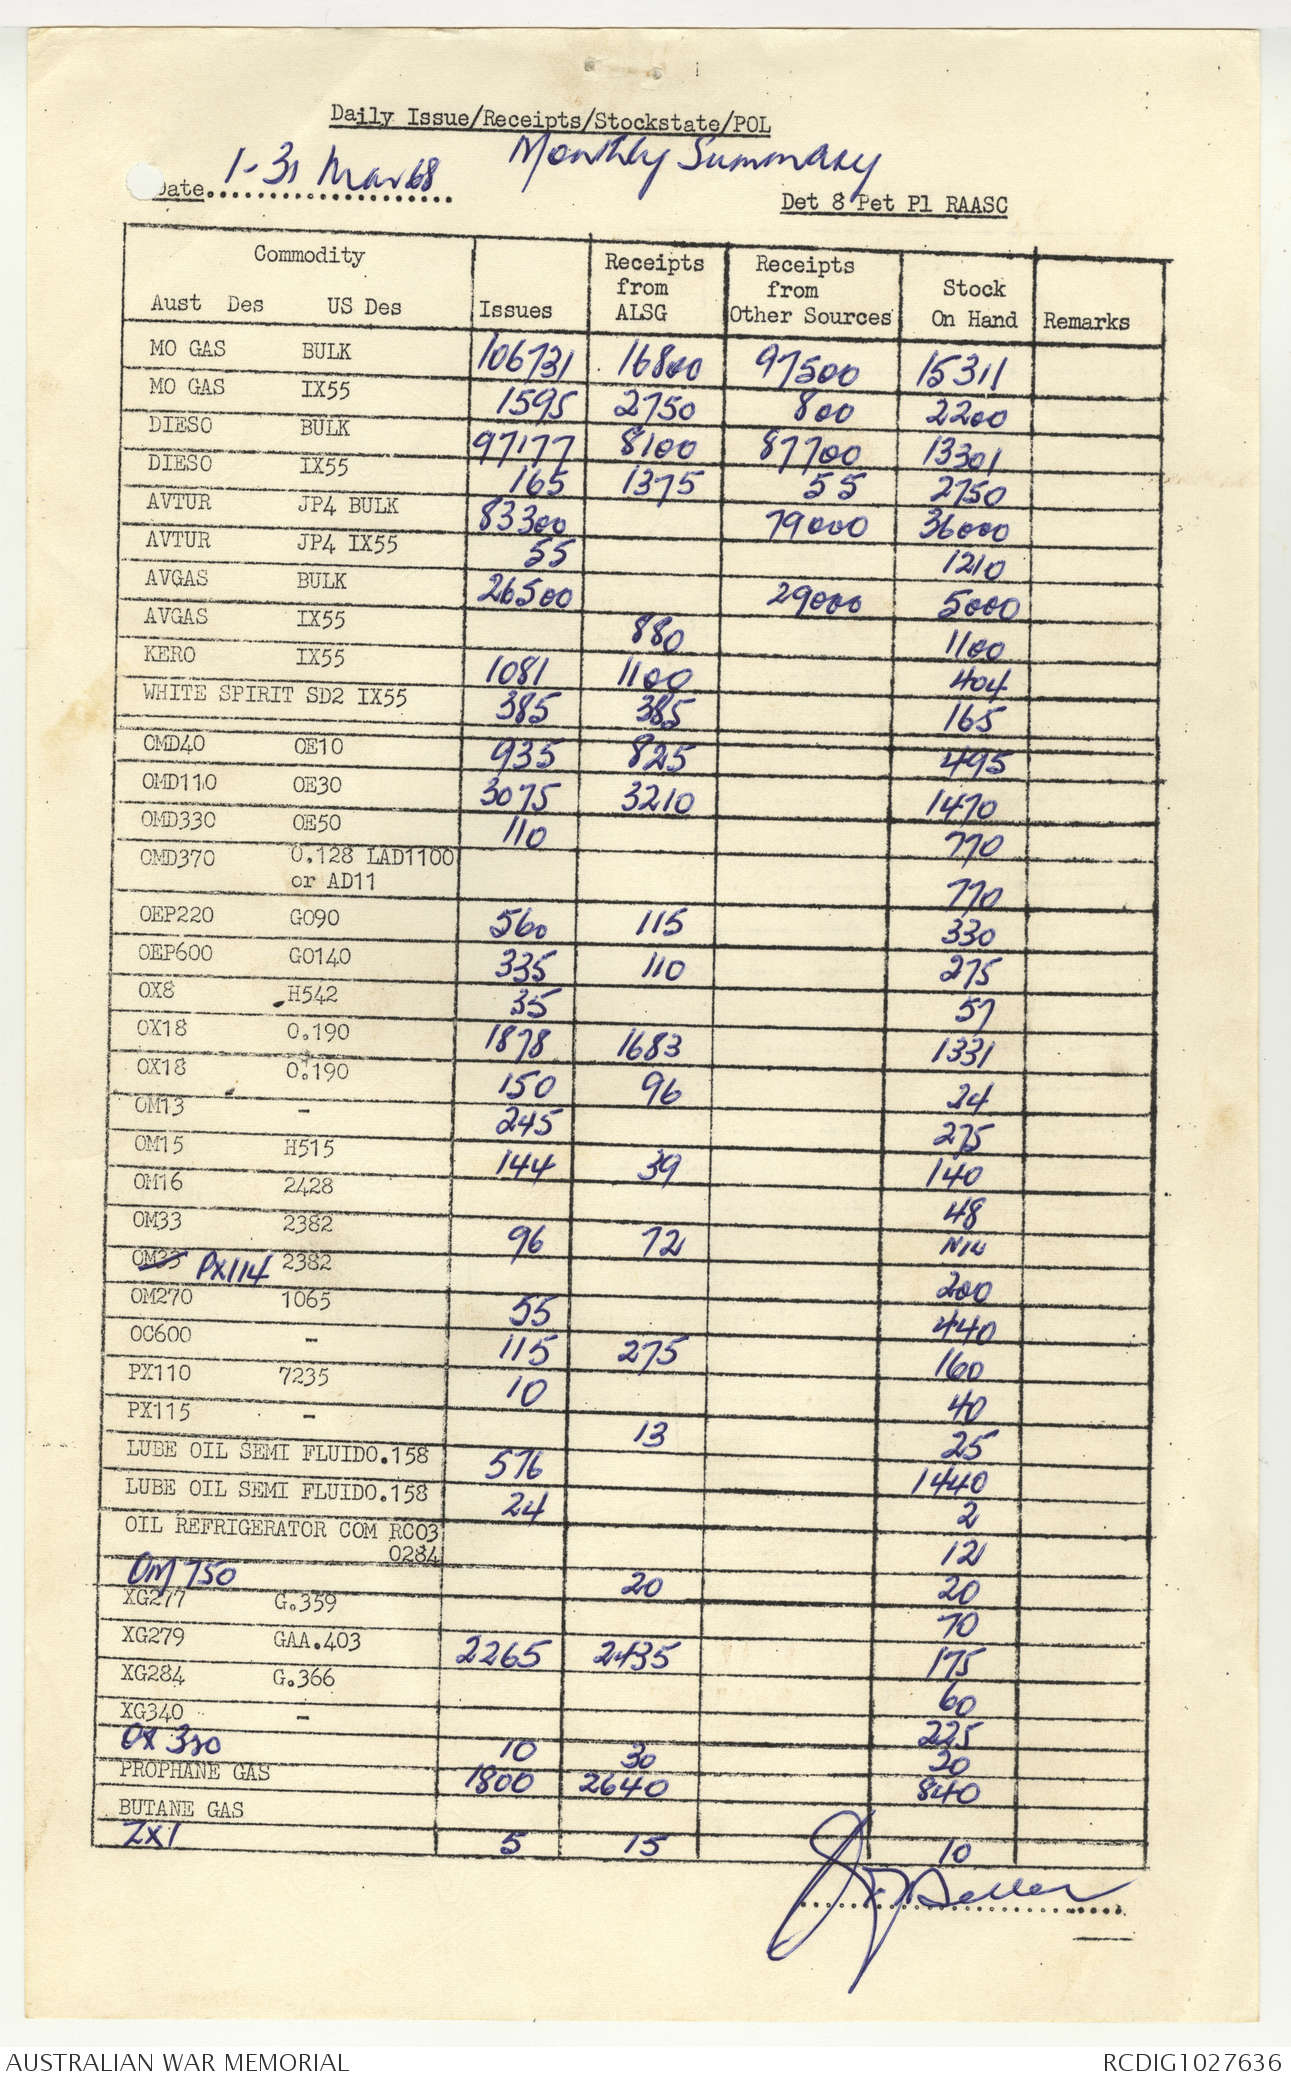 Daily Issue/Receipts/Stockstate/POL
Monthly Summary
Date 1-31 Mar 68
Det 8 Pet Pl RAASC
Commodity Aust Des US Des Issues Receipts from ALSG Receipts from Other Sources Stock On Hand Remarks
MO GAS BULK 106731 16800 97500 15311
MO GAS IX55 1595 2750 800 2200
DIESO BULK 97177 8100 87700 13301
DIESO IX55 165 1375 55 2750
AVTUR JP4 BULK 83300 79000 36000
AVTUR JP4 IX55 55 1210
AVGAS BULK 26500 29000 5000
AVGAS IX55 880 1100
KERO IX55 1081 1100 404
WHITE SPIRIT SD2 IX55 385 385 165
OMD40 OE10 935 825 495
OMD110 OE30 3075 3210 1470
OMD330 OE50 110 770
OMD370 O.128 LAD1100 or AD11 770
OEP220 GO90 560 115 330
OEP600 GO140 335 110 275
OX8 H542 35 57
OX18 O.190 1878 1683 1331
OX18 O.190 150 96 24
OM13 - 245 275
OM15 H515 144 39 140
OM16 2428 48
OM33 2382 96 72 NIL
OM33 PX114 2382 200
OM270 1065 55 440
OC600 - 115 275 160
PX110 7235 10 40
PX115 - 13 25
LUBE OIL SEMI FLUIDO.158 576 1440
LUBE OIL SEMI FLUIDO.158 24 2
OIL REFRIGERATOR COM RCO3 0284 12
OM 750 20 20
XG277 G.359 70
XG279 GAA.403 2265 2435 175
XG284 G.366 60
XG340 - 225
OX 320 10 30 20
PROPHANE GAS 1800 2640 840
BUTANE GAS
ZX1 5 15 10
AUSTRALIAN WAR MEMORIAL
RCDIG1027636